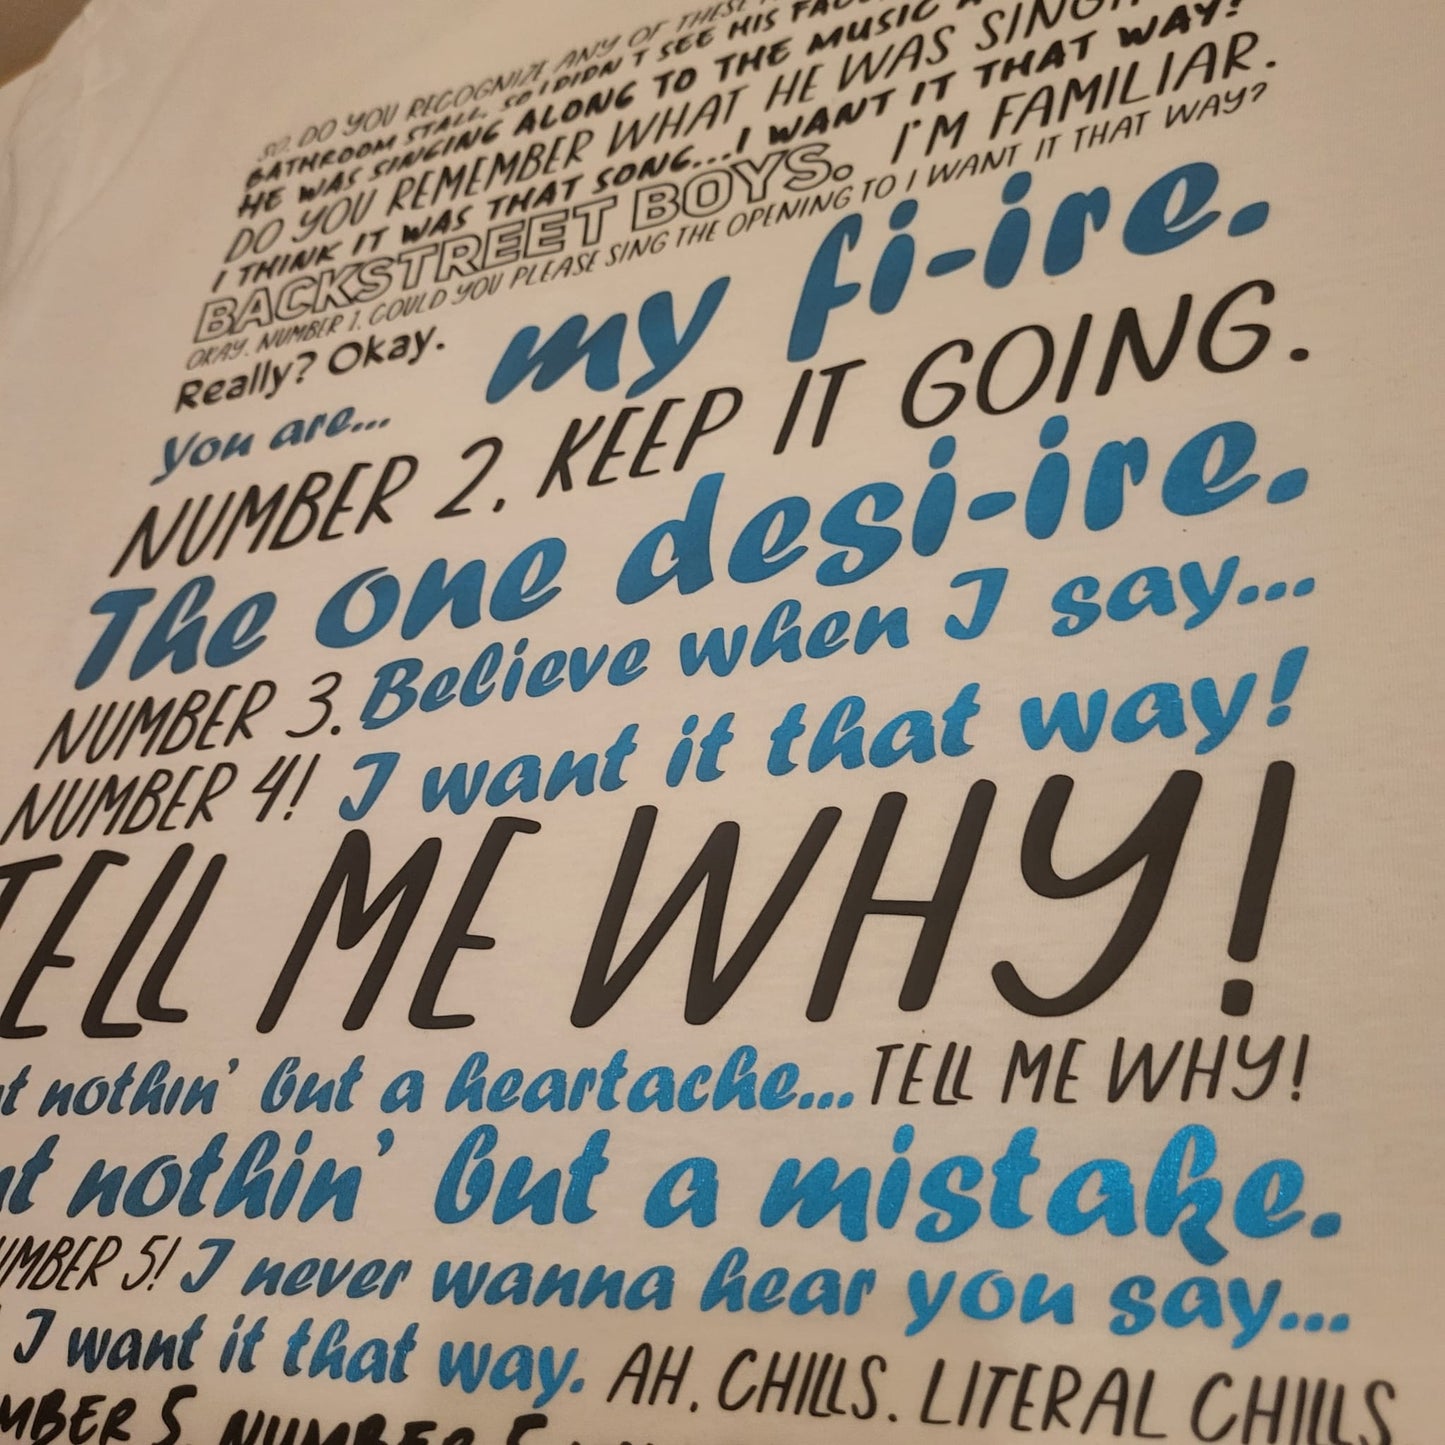 SO, DO YOU RECOGNIZE ANY OF THESE
BATHROOM STALL. SO I DIDN'T SEE HIS FACE
HE WAS SINGING ALONG TO THE MUSIC
DO YOU REMEMBER WHAT HE WAS
I THINK IT WAS THAT SONG...I WANT IT THAT WAY?
BACKSTREET BOYS. I'M FAMILIAR.
OKAY. NUMBER 1. COULD YOU PLEASE SING THE OPENING TO I WANT IT THAT WAY?
Really? Okay.
You are... my fi-ire.
NUMBER 2. KEEP IT GOING.
The one desi-ire.
NUMBER 3. Believe when I say...
NUMBER 4! I want it that way!
TELL ME WHY!
nothin' but a heartache...TELL ME WHY!
nothin' but a mistake.
NUMBER 5! I never wanna hear you say...
I want it that way. AH, CHILLS. LITERAL CHILLS
MBER 5. NUMBER 5